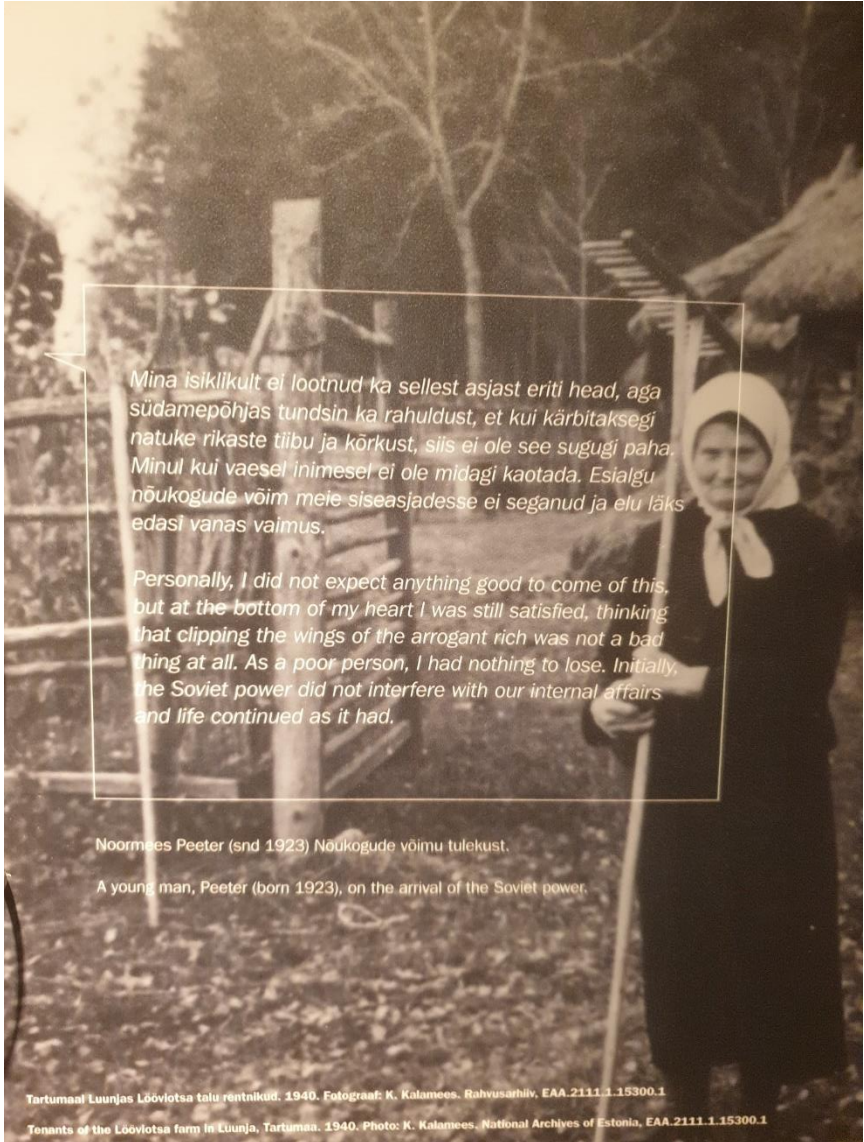 Mina isiklikult ei lootnud ka sellest asjast eriti head, aga
südamepõhjas tundsin ka rahuldust, et kui kärbitaksegi
natuke rikaste tiibu ja kõrkust, siis ei ole see sugugi paha.
Minul kui vaesel inimesel ei ole midagi kaotada. Esialgu
nõukogude võim meie siseasjadesse ei seganud ja elu läks
edasi vanas vaimus.
Personally, I did not expect anything good to come of this,
but at the bottom of my heart I was still satisfied, thinking
that clipping the wings of the arrogant rich was not a bad
thing at all. As a poor person, I had nothing to lose. Initially,
the Soviet power did not interfere with our internal affairs
and life continued as it had.
Noormees Peeter (snd 1923) Nõukogude võimu tulekust.
A young man, Peeter (born 1923), on the arrival of the Soviet power.
Tartumaal Luunjas Lööviotsa talu rentnikud. 1940. Fotograaf: K. Kalamees. Rahvusarhiiv, EAA.2111.1.15300.1
Tenants of the Lööviotsa farm in Luunja, Tartumaa. 1940. Photo: K. Kalamees. National Archives of Estonia, EAA.2111.1.15300.1